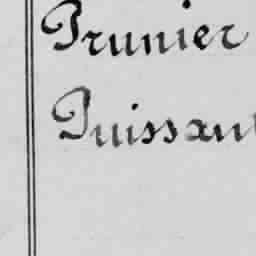 Prunier
Puissant